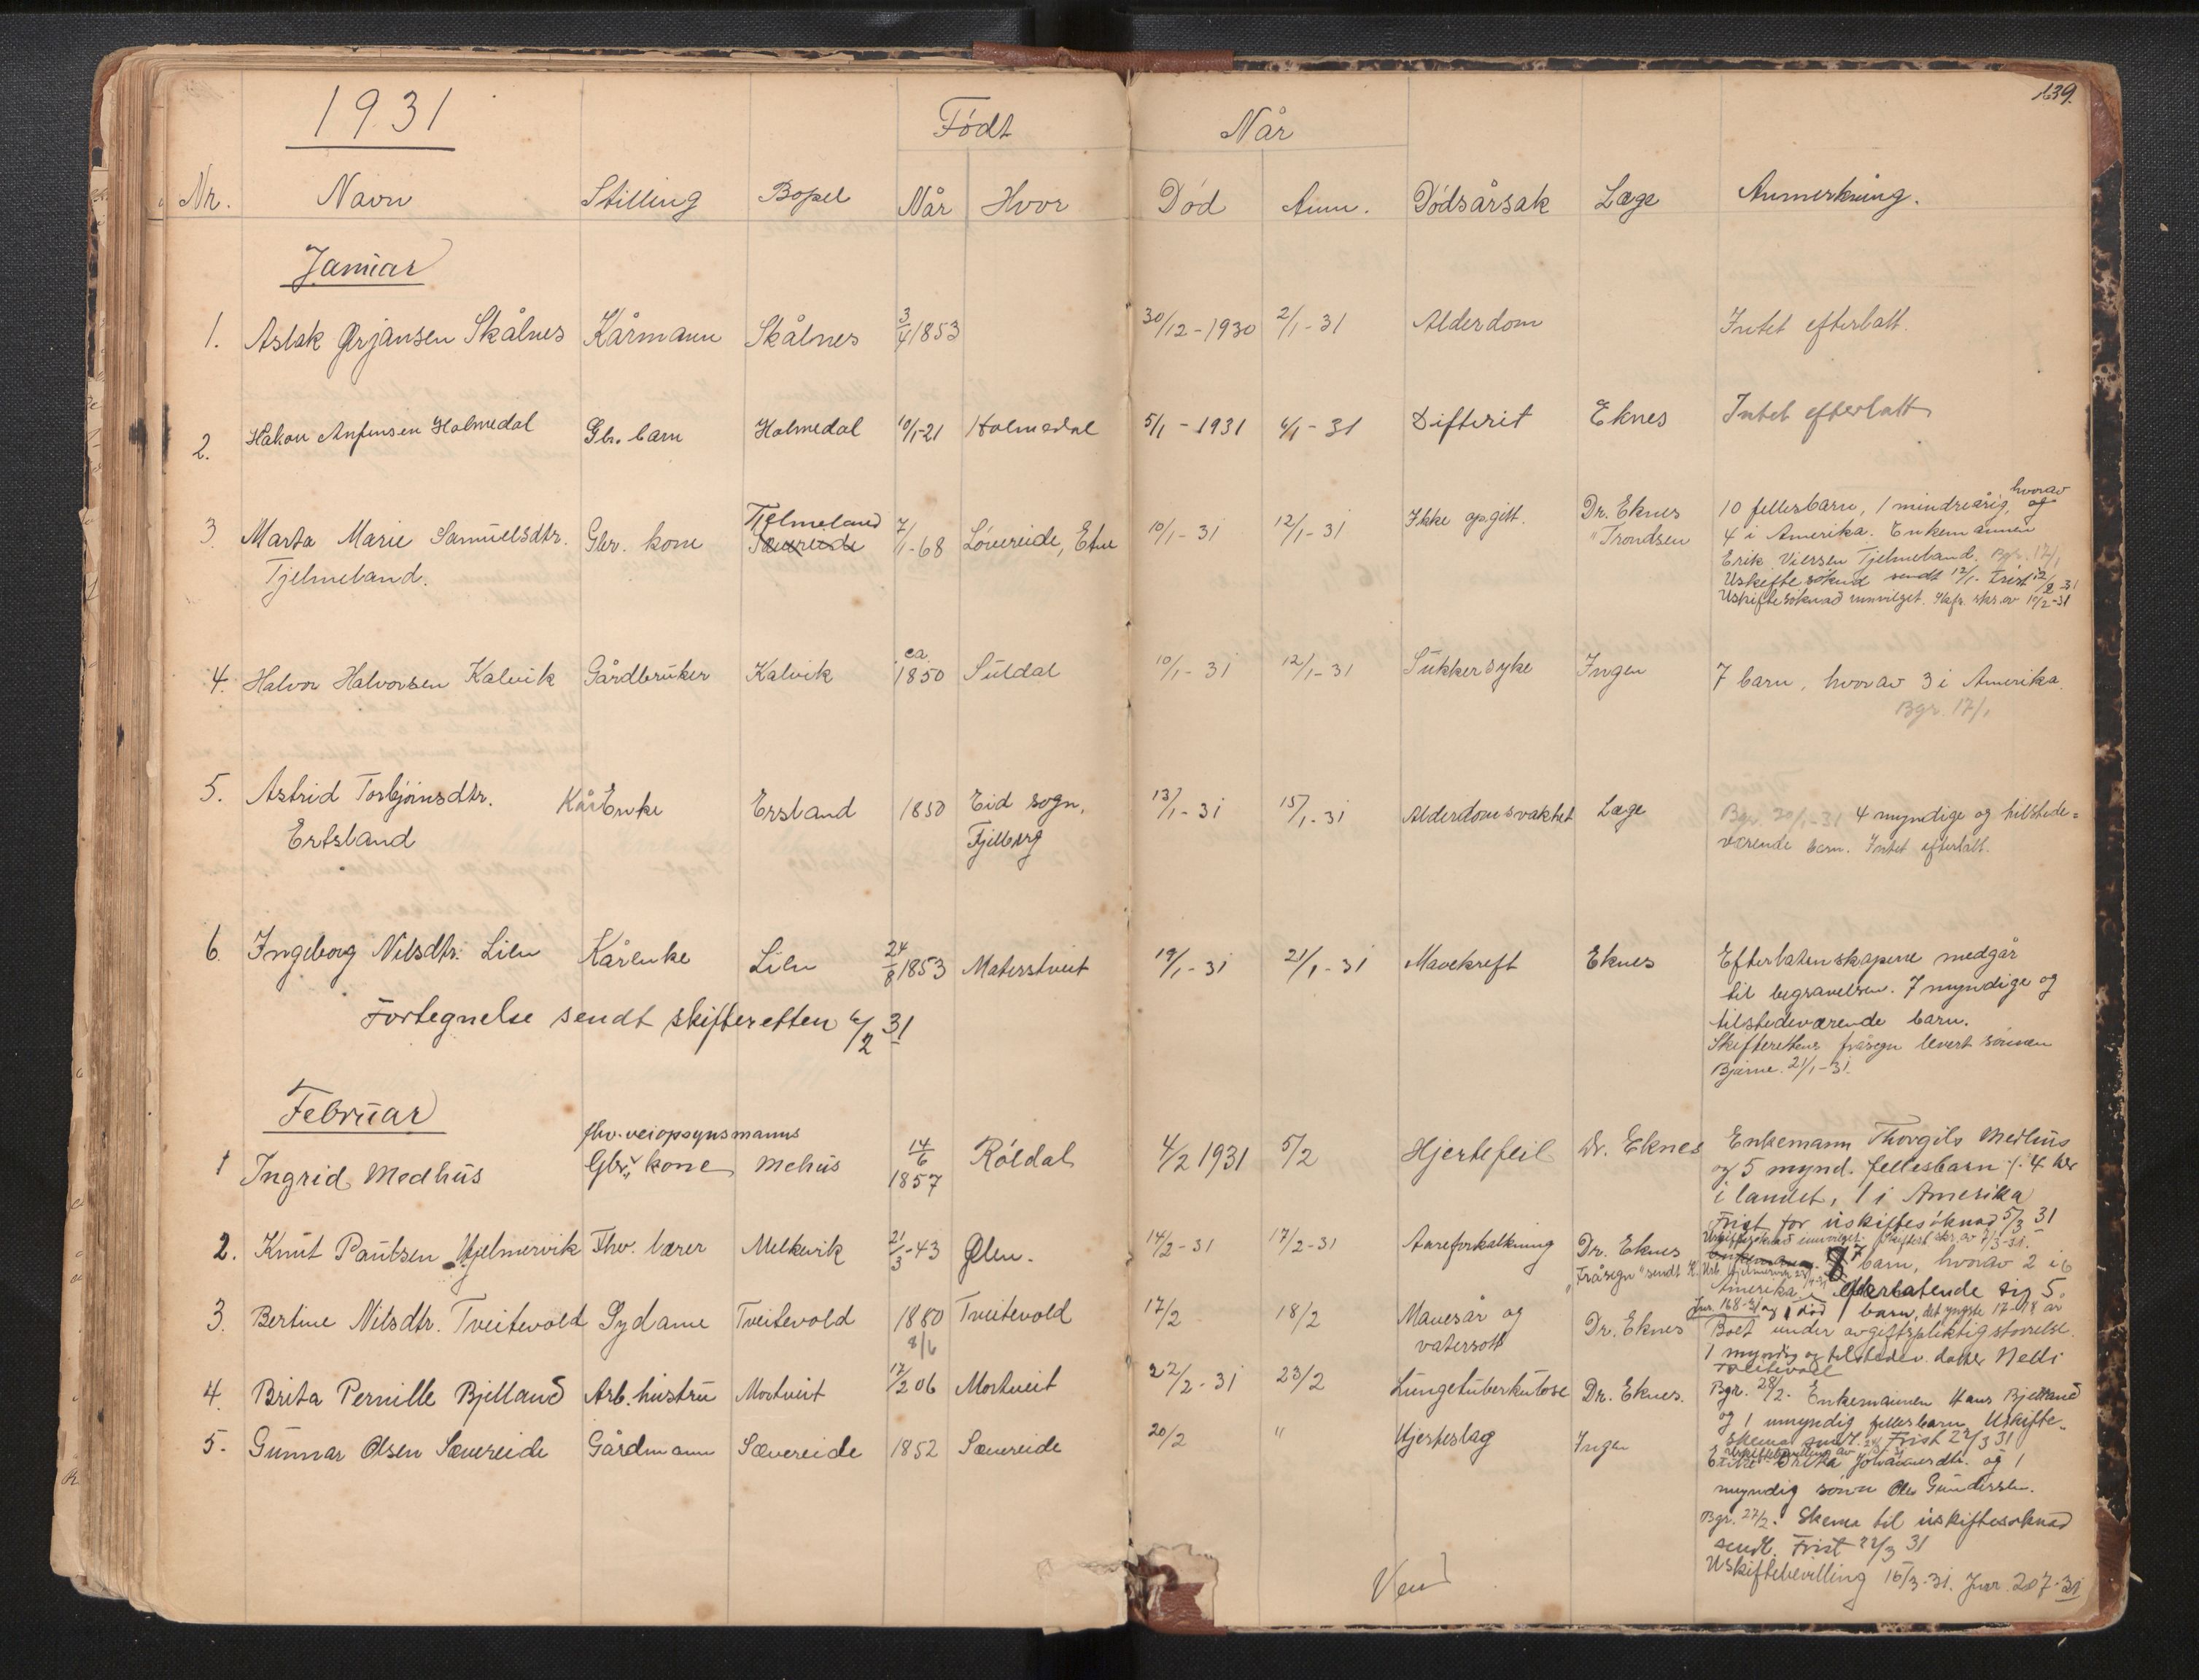 139.
1931
Født
Når
Nr. Navn Stilling Bopel Når Hvor Død Anm. Dødsårsak Læge Anmerkning.
Januar
1. Aslak Ørjansen Skålnes Kårmann Skålnes 3/4 1853 30/12-1930 2/1-31 Alderdom Intet efterlatt.
2. Håkon Anfinsen Holmedal Gbr. barn Holmedal 10/1-21 Holmedal 5/1-1931 6/1-31 Difterit Eknes Intet efterlatt
3. Marta Marie Samuelsdtr. Gbr. kone Tjelmeland Sævereide 7/1-68 Løvereide, Etne 10/1-31 12/1-31 Ikke opgitt. Dr. Eknes 10 fellesbarn, 1 mindreårig, hvorav og
Tjelmeland. " Trondsen 4 i Amerika. Enkemannen
Erik Viersen Tjelmeland. Bgr. 17/1
Uskiftesøknad sendt 12/1. Frist 12/2-31
Uskiftesøknad innvilget. Skfr. skr. av 10/2-31
4. Halvor Halvorsen Kalvik Gårdbruker Kalvik ca 1850 Suldal 10/1-31 12/1-31 Sukkersyke Ingen 7 barn, hvorav 3 i Amerika.
Bgr. 17/1
5. Astrid Torbjørnsdtr. Kår Enke Ersland 1850 Eid sogn, 13/1-31 15/1-31 Alderdomsvakhet Læge Bgr. 20/1-31 4 myndige og tilstede=
Ertsland Fjelberg værende barn. Intet efterlatt.
6. Ingeborg Nilsdtr. Lien Kårenke Lien 24/8 1853 Matersteit 19/1-31 21/1-31 Mavekreft Eknes Efterlatenskapene medgår
til begravelsen. 7 myndige og
Fortegnelse sendt skifteretten 6/2 31
tilstedeværende barn.
Skifterettens fråsegn levert sønnen
Bjarne. 21/1-31.
Februar
fhv. veiopsynsmanns
1 Ingrid Medhus Gbr. kone Mehus 14/6 1857 Røldal 4/2 1931 5/2 Hjertefeil Dr. Eknes Enkemann Thorgils Medhus
og 5 mynd. fellesbarn ⁒ 4 her
i landet, 1 i Amerika
Frist for uskiftesøknad 5/3 31
Uskiftesøknad innvilget. skifterett skr. av 7/3-31.
2. Knut Paulsen Hjelmervik Fhv. lærer Melkevik 21/3-43 Ølen. 14/2-31 17/2-31 Aareforkalkning Dr. Eknes 7 barn, hvorav 2 i
"Fråsegn" sendt Amerika, efterlatende sig 5
Jnr. 168-31 og 1 død barn, det yngste 17-18 år
3. Bertine Nilsdtr. Tveitevold Sydame Tveitevold 1880 8/6 Tveitevold 17/2 18/2 Mavesår og Dr. Eknes Boet under avgiftspliktig størrelse.
vatersott 1 myndig og tilstedev. datter Nelli
Tveitevold
4. Brita Pernille Bjelland Arb. hustru Mortveit 12/2 06 Mortveit 22/2-31 23/2 Lungetuberkulose Dr. Eknes. Bgr. 28/2. Enkemannen Hans Bjelland
og 1 umyndig fellesbarn. Uskifte-
skema sendt. Frist 22/3 31
5. Gunnar Olsen Sævereide Gårdmann Sævereide 1852 Sævereide 20/2 " Hjerteslag Ingen Enke Brita Johannesdtr. og 1
myndig sønn Ole Gundersen.
Bgr. 27/2. Skema til uskiftesøknad
sendt. Frist 22/3 31
Uskiftebevilling 16/3-31. Jnr. 207-31
Vend